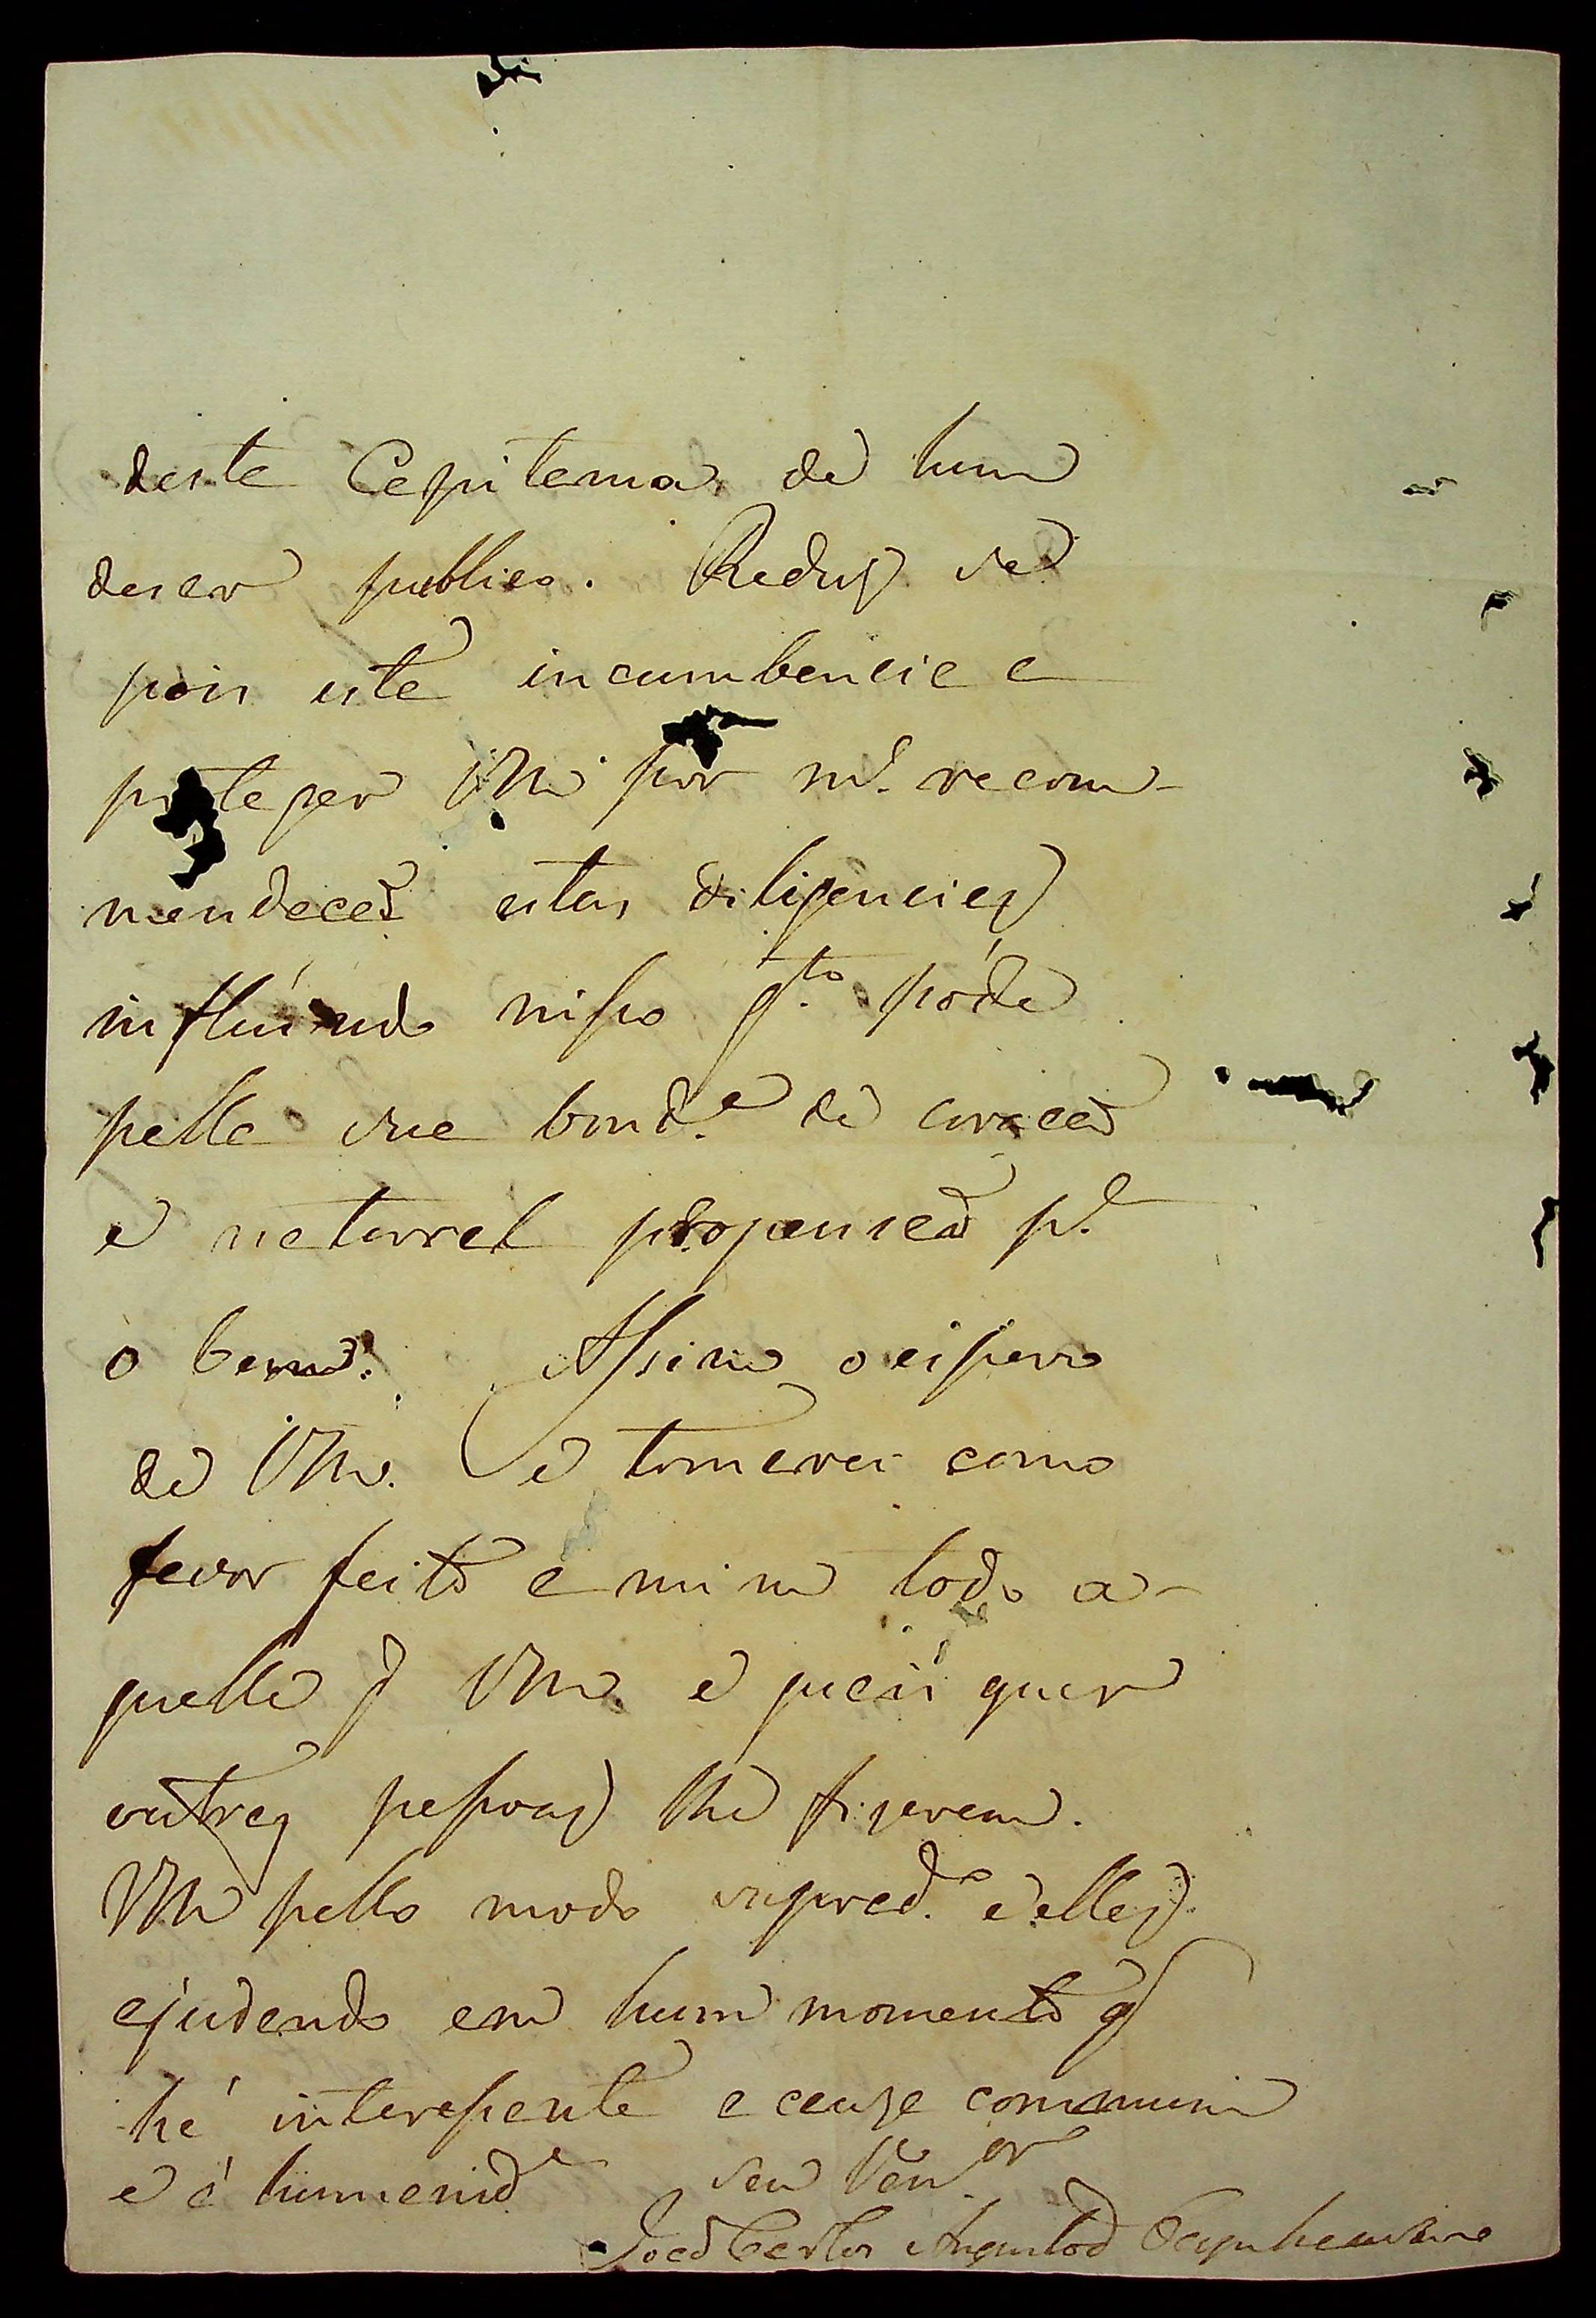 deste Capitania de hum
dezar publico. Reduz se
pois esta incumbencia a
proteger VM.ce por m.a recom-
mendaçaõ estas diligencias
influindo nisso q.to póde
pella sua bond.e de coraçaõ
e natural propensaõ p.a
o bem. Assim o espero
de VM.ce e tomarei como
favor feito a mim todo a-
quelle q VM.ce e quais quer
outras pessoas lhe fizerem.
VM.ce pello modo supred.o a elles
ajudando em hum momento q
hé interessente a causa commum
e á humanid.e seu Ven.or
Joaõ Carlos Augusto d'Oeynhausen